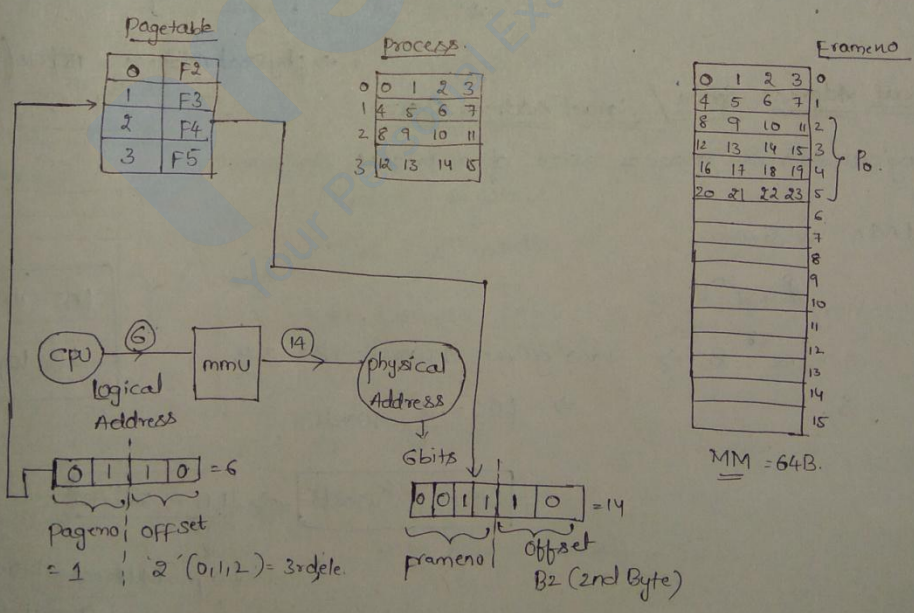 Pagetable
0 F2
1 F3
2 F4
3 F5
Process.
0 0 1 2 3
1 4 5 6 7
2 8 9 10 11
3 12 13 14 15
Frameno
0 1 2 3 0
4 5 6 7 1
8 9 10 11 2
12 13 14 15 3
16 17 18 19 4
20 21 22 23 5
P0.
6
7
8
9
10
11
12
13
14
15
MM = 64B.
CPU
6
Logical
Address
MMU
14
Physical
Address
6bits
0 1 1 0 = 6
Pageno offset
= 1 '2' (0,1,2) = 3rd ele.
0 0 1 1 1 0 = 14
frameno offset
B2 (2nd Byte)
Your Personal Ex